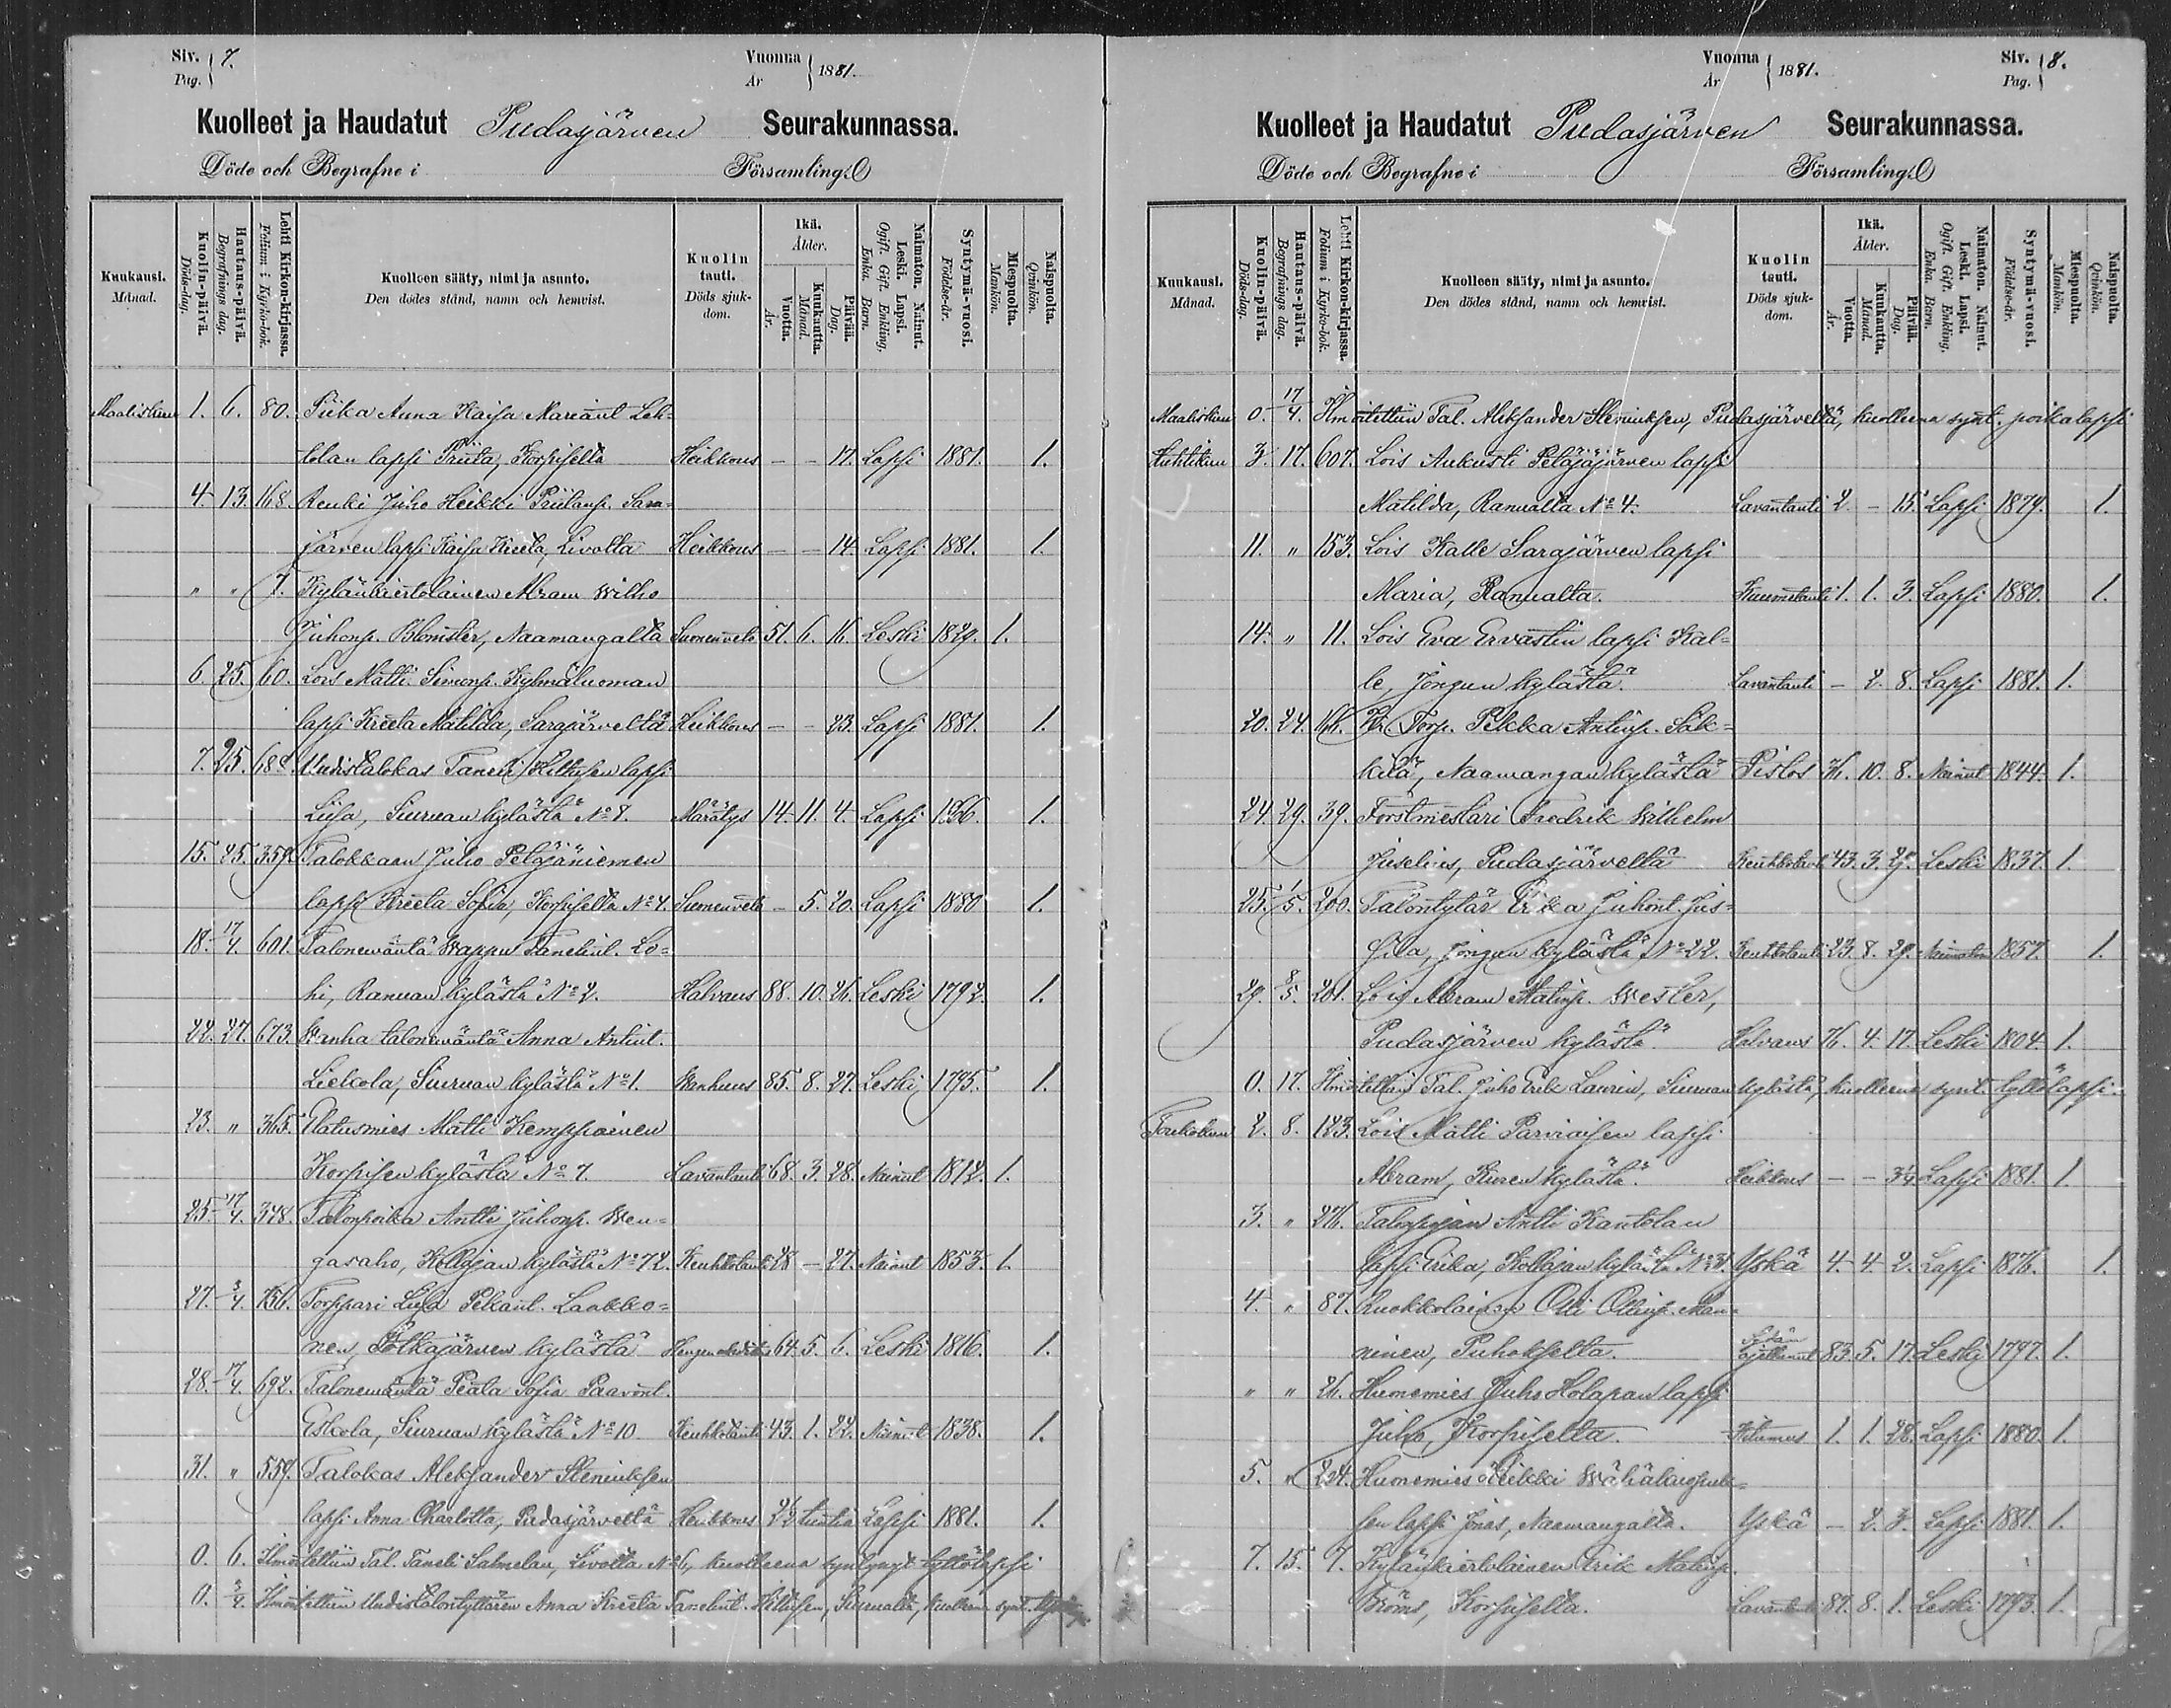 Siv. 7.
Pag.
Vuonna 1881.
År
Kuolleet ja Haudatut Pudasjärven Seurakunnassa.
Döde och Begrafne i Församling.
Kuukausi. Månad.
Kuolin-päivä. Döds-dag.
Hautaus-päivä. Begrafnings dag.
Lehti Kirkon-kirjassa. Folium i Kyrko-bok.
Kuolleen sääty, nimi ja asunto. Den dödes stånd, namn och hemvist.
Kuolin tauti. Döds sjukdom.
Ikä. Ålder.
Vuotta. År.
Kuukautta. Månad.
Päivää. Dag.
Naimaton. Nainut. Leski. Lapsi. Ogift. Gift. Enkling. Enka. Barn.
Syntymä-vuosi. Födelse-år.
Miespuolta. Mankön.
Naispuolta. Qvinkön.
Maaliskuu 1. 6. 80. Piika Anna Kaisa Mariant. Leh-
tolan lapsi Priita, Korpiselta Heikkous - - 17. Lapsi 1881. 1.
4. 13. 168. Renki Juho Heikki Priitanp. Sara-
järven lapsi Kaisa Kreeta, Livolta Heikkous - - 14. Lapsi 1881. 1.
" " 7. Kylänkiertolainen Abram Wilho
Juhonp. Blomster, Naamangalta Suonenveto 51. 6. 16. Leski 1829. 1.
6. 25. 60. Lois Matti Simonp. Kylmäluoman
lapsi Kreeta Matilda, Sarajärveltä Heikkous - - 23. Lapsi 1881. 1.
7. 25. 688. Uudistalokas Taneli Hiltusen lapsi
Liisa, Siuruan kylästä No 8. Märätys 14. 11. 4. Lapsi 1866. 1.
15. 25. 359. Talokkaan Juho Peläjäniemen
lapsi Kreeta Sofia, Korpiselta No 4. Suonenveto - 5. 20. Lapsi 1880 1.
18. 17/4. 601. Talonemäntä Wappu Tanelint. Lo-
hi, Ranuan kylästä No 2. Halvaus 88. 10. 26. Leski 1792. 1.
22. 27. 673. Wanha talonemäntä Anna Antint.
Liekola, Siuruan kylästä No 1. Wanhuus 85. 8. 27. Leski 1795. 1.
23. " 365. Elatusmies Matti Kemppainen
Korpisen kylästä No 7. Lavantauti 68. 3. 28. Nainut 1812. 1.
25. 17/4. 348. Talonpoika Antti Juhonp. Wen-
gasaho, Kollajan kylästä No 72. Keuhkotauti 28 - 27. Nainut 1853. 1.
27. 3/4. Torppari Liisa Pekant. Laakko-
nen, Jölkäjärven kylästä 64. 5. 6. Leski 1816. 1.
28. 17/4. 692. Talonemäntä Peata Sofia Paavont.
Eskola, Siuruan kylästä No 10 Keuhkotauti 43. 1. 22. Nainut 1838. 1.
31. " 559. Talokas Aleksander Steniuksen
lapsi Anna Charlotta, Pudasjärveltä Heikkous 2 1/2 tuntia Lapsi 1881. 1.
0. 6. Ilmoitettiin Tal. Taneli Salmelan, Livolta No 6, kuolleena syntynyt tyttölapsi
0. 3/4. Ilmoitettiin Uudistalontyttären Anna Kreeta Tanelint. Hiltusen, Siurualta, kuolleena synt.
Vuonna 1881.
År
Siv. 8.
Pag.
Kuolleet ja Haudatut Pudasjärven Seurakunnassa.
Döde och Begrafne i Församling.
Kuukausi. Månad.
Kuolin-päivä. Döds-dag.
Hautaus-päivä. Begrafnings dag.
Lehti Kirkon-kirjassa. Folium i Kyrko-bok.
Kuolleen sääty, nimi ja asunto. Den dödes stånd, namn och hemvist.
Kuolin tauti. Döds sjukdom.
Ikä. Ålder.
Vuotta. År.
Kuukautta. Månad.
Päivää. Dag.
Naimaton. Nainut. Leski. Lapsi. Ogift. Gift. Enkling. Enka. Barn.
Syntymä-vuosi. Födelse-år.
Miespuolta. Mankön.
Naispuolta. Qvinkön.
Maaliskuu 0. 17/4. Ilmoitettiin Tal. Aleksander Steniuksen, Pudasjärveltä, kuolleena synt. poikalapsi
Huhtikuu 3. 17. 607. Lois Aukusti Peläjäjärven lapsi
Matilda, Ranualta No 4. Lavantauti 2. - 15. Lapsi 1879. 1.
11. " 153. Lois Kalle Sarajärven lapsi
Maria, Ranualta. Kuumetauti 1. 1. 3. Lapsi 1880. 1.
14. " 11. Lois Eva Ervastin lapsi Kal-
le, Jongun kylästä. Lavantauti - 2. 8. Lapsi 1881. 1.
20. 24. Kr. Torp. Pekka Antinp. Säk-
kilä, Naamangan kylästä Pistos 36. 10. 8. Nainut 1844. 1.
24. 29. 39. Forstmestari Fredrik Wilhelm
Juselius, Pudasjärveltä Keuhkotauti 43. 3. 29. Leski 1837. 1.
25. 1/5. 200. Talontytär Erika Juhont. Jus-
sila, Jongun kylästä No 22. Keuhkotauti 23. 8. 29. Naimaton 1857. 1.
29. 8/5. 201. Lois Abram Matinp. Wester,
Pudasjärven kylästä. Halvaus 76. 4. 17. Leski 1804. 1.
0. 17. Ilmoitettiin Tal. Juho Erik Laurin, Siuruan kylästä, kuolleena synt. tyttölapsi.
Toukokuu 2. 8. 123. Lois Matti Parviaisen lapsi
Abram, Kuren kylästä. Heikkous - - 3/4 Lapsi 1881. 1.
3. " 276. Talonpojan Antti Kantolan
lapsi Erika, Kollajan kylästä No 31. Yskä 4. 4. 2. Lapsi 1876. 1.
4. " 87. Ruokkolainen Olli Ollinp. Man-
ninen, Puhokselta. 83. 5. 17. Leski 1797. 1.
" " 26. Huonemies Juho Holapan lapsi
Juho, Korpiselta. Kitumus 1. 1. 28. Lapsi 1880. 1.
5. " 224. Huonemies Heikki
sen lapsi Jonas, Naamangalta. Yskä - 2. 3. Lapsi 1881. 1.
7. 15. 7. Kylänkiertolainen Erik Matinp.
Ströms, Korpiselta. Lavantauti 87. 8. 1. Leski 1793. 1.